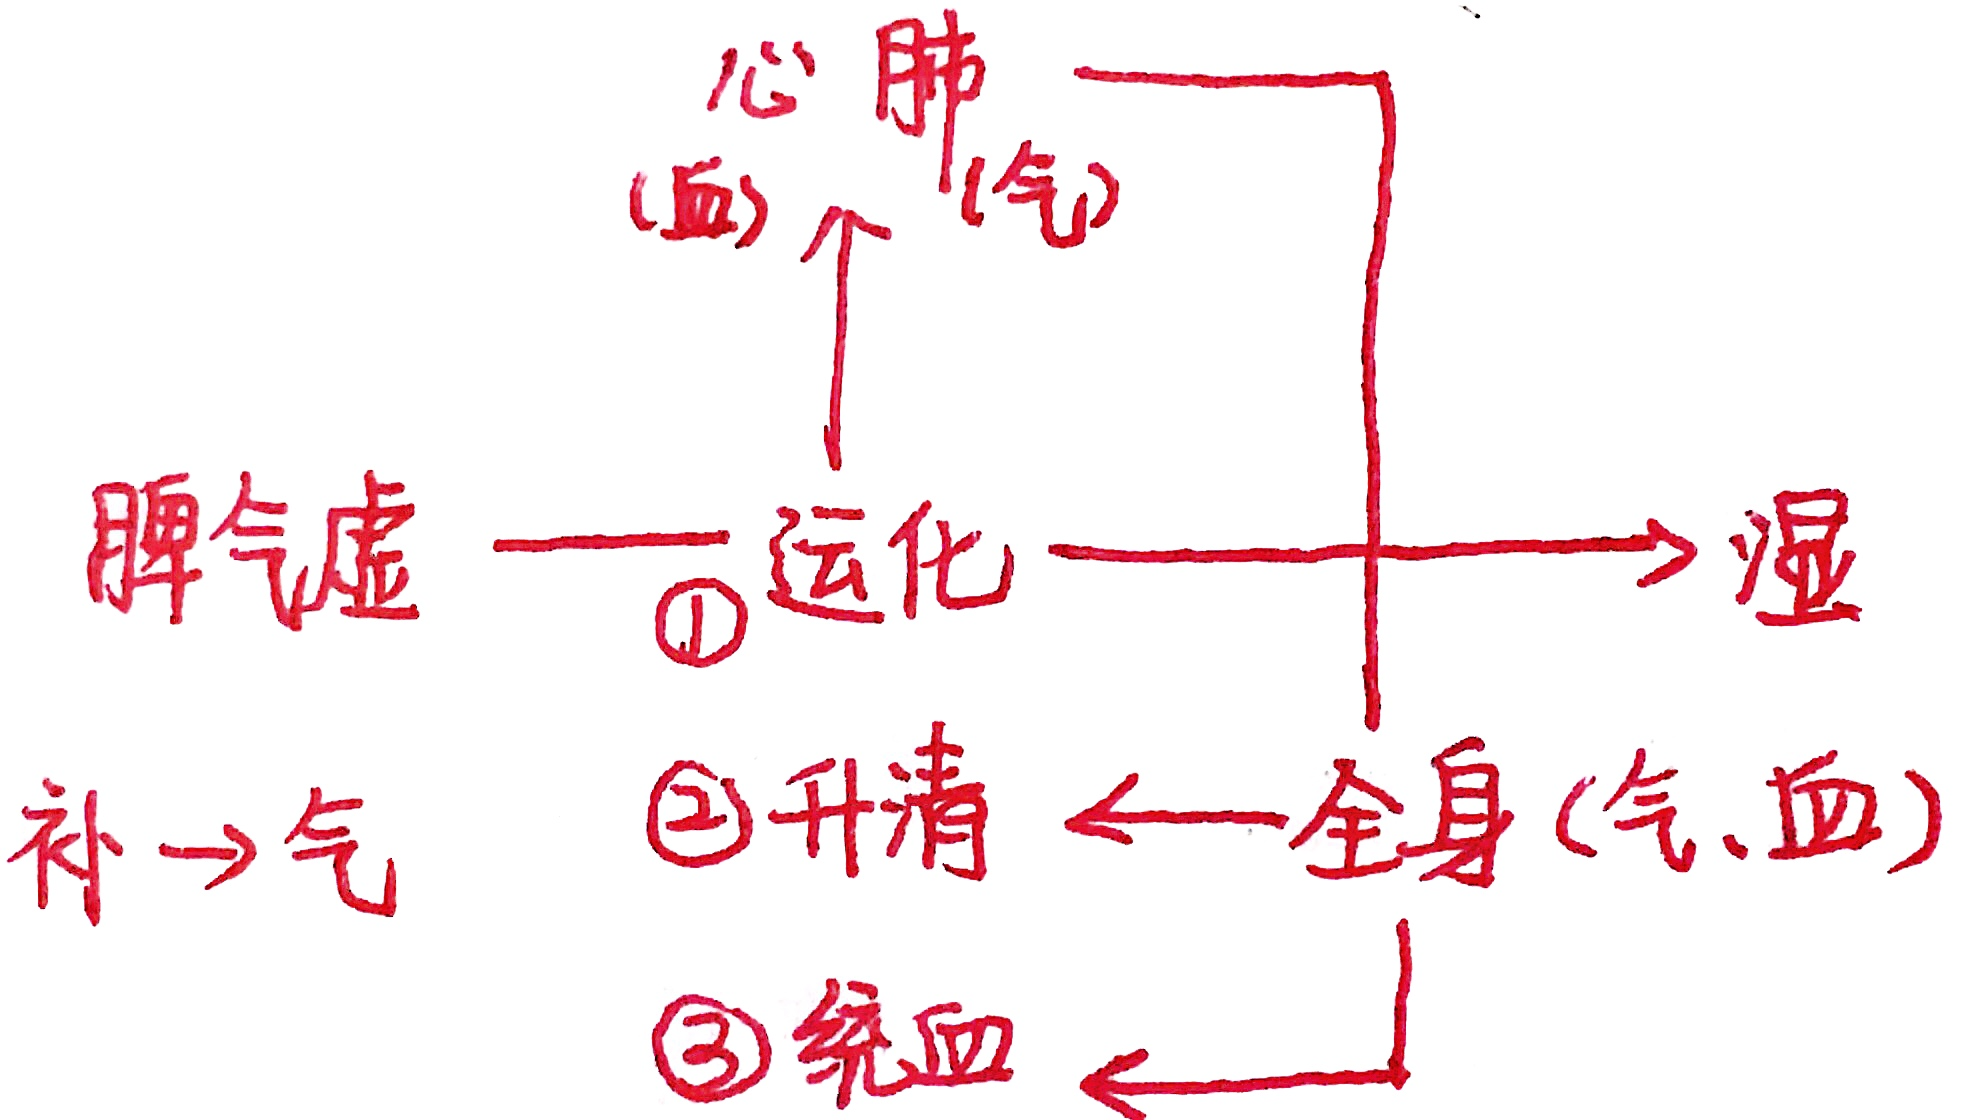 心 肺
(血) (气)
脾气虚 — ①运化 → 湿
补→气 ②升清 ← 全身(气、血)
③统血 ←